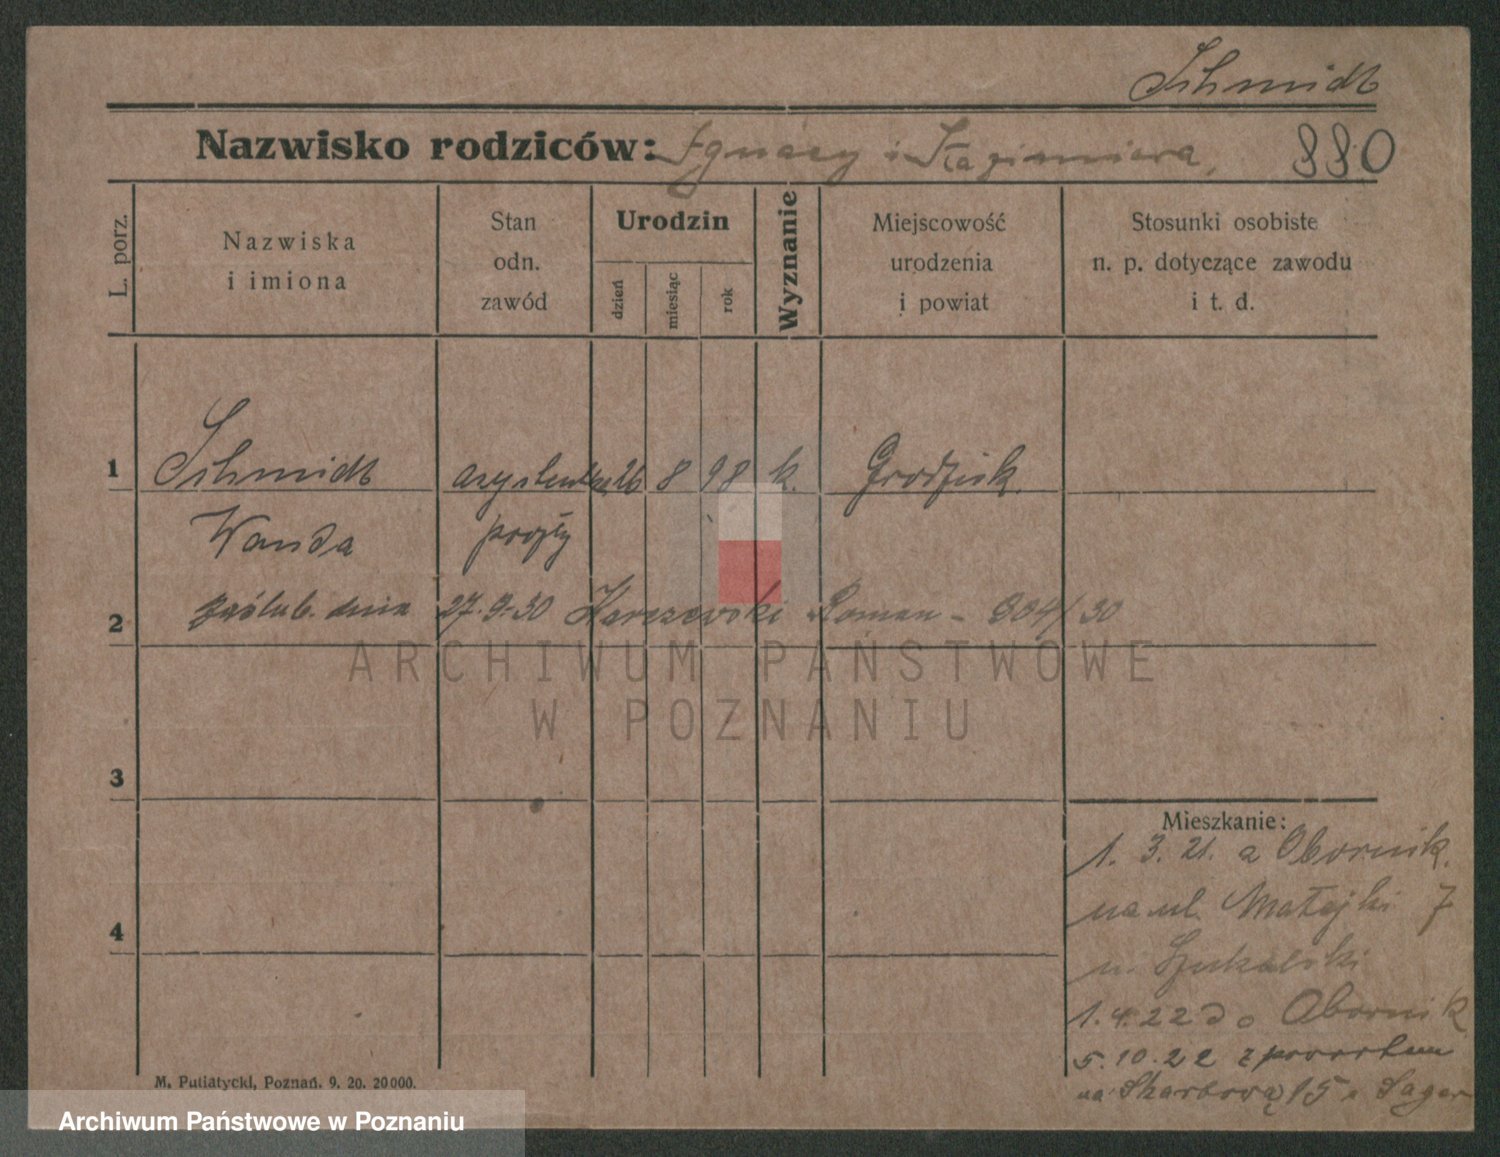 Schmidt
Nazwisko rodziców: Ignacy i Kazimiera.
880
L. porz.
Nazwiska
i imiona
Stan
odn.
zawód
Urodzin
dzień
miesiąc
rok
Wyznanie
Miejscowość
urodzenia
i powiat
Stosunki osobiste
n. p. dotyczące zawodu
i t. d.
1 Schmidt 26 8 98 k. Grodzisk.
Wanda poczty
2 zaślub. dnia 27.9.30 Karszewski Roman - 904/30
ARCHIWUM PAŃSTWOWE
W POZNANIU
3
4
Mieszkanie:
1. 3. 21. z Obornik.
na ul. Matejki 7
u. Szukalski
1. 4. 22 do Obornik
5. 10. 22 z powrotem
na Skarbową 15 u Sager
M. Putiatycki, Poznań. 9. 20. 20000.
Archiwum Państwowe w Poznaniu